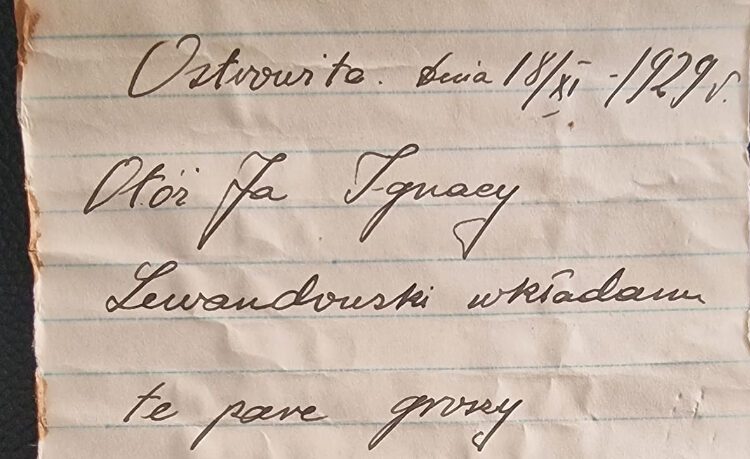 Ostrowite. dnia 18/XI - 1929 r.
Otóż Ja Ignacy
Lewandowski wkładam
te pare groszy